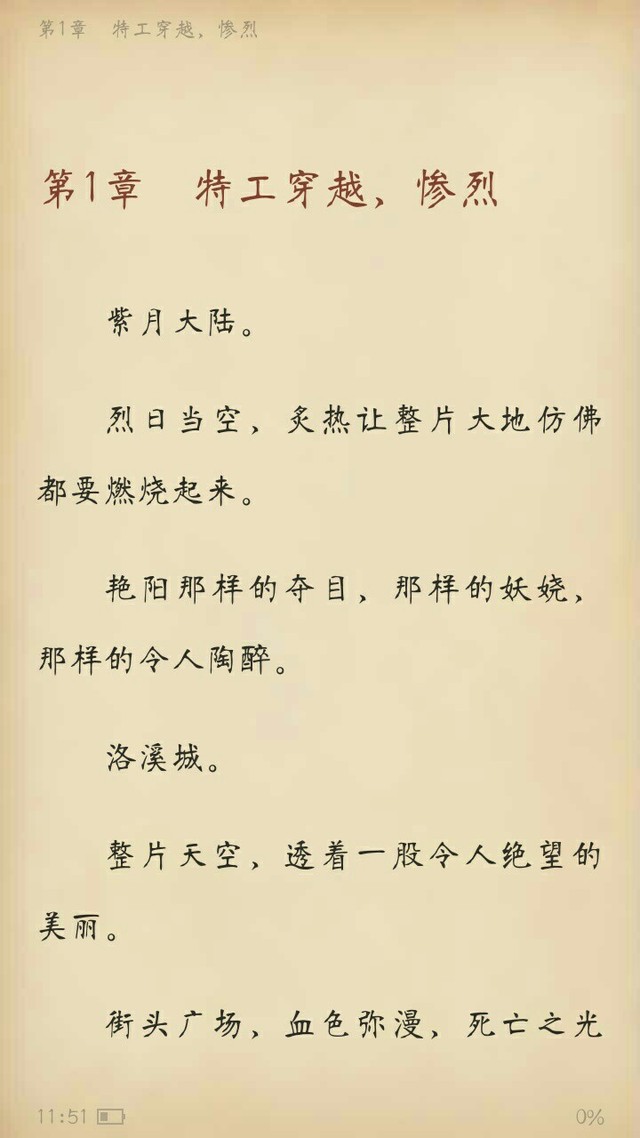 第1章 特工穿越，惨烈
第1章 特工穿越，惨烈
紫月大陆。
烈日当空，炙热让整片大地仿佛
都要燃烧起来。
艳阳那样的夺目，那样的妖娆，
那样的令人陶醉。
洛溪城。
整片天空，透着一股令人绝望的
美丽。
街头广场，血色弥漫，死亡之光
11:51 0%